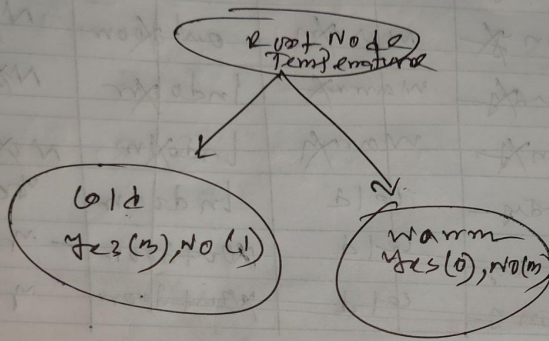 Root Node
Temperature
Cold
Yes(3), No(1)
Warm
Yes(0), No(3)